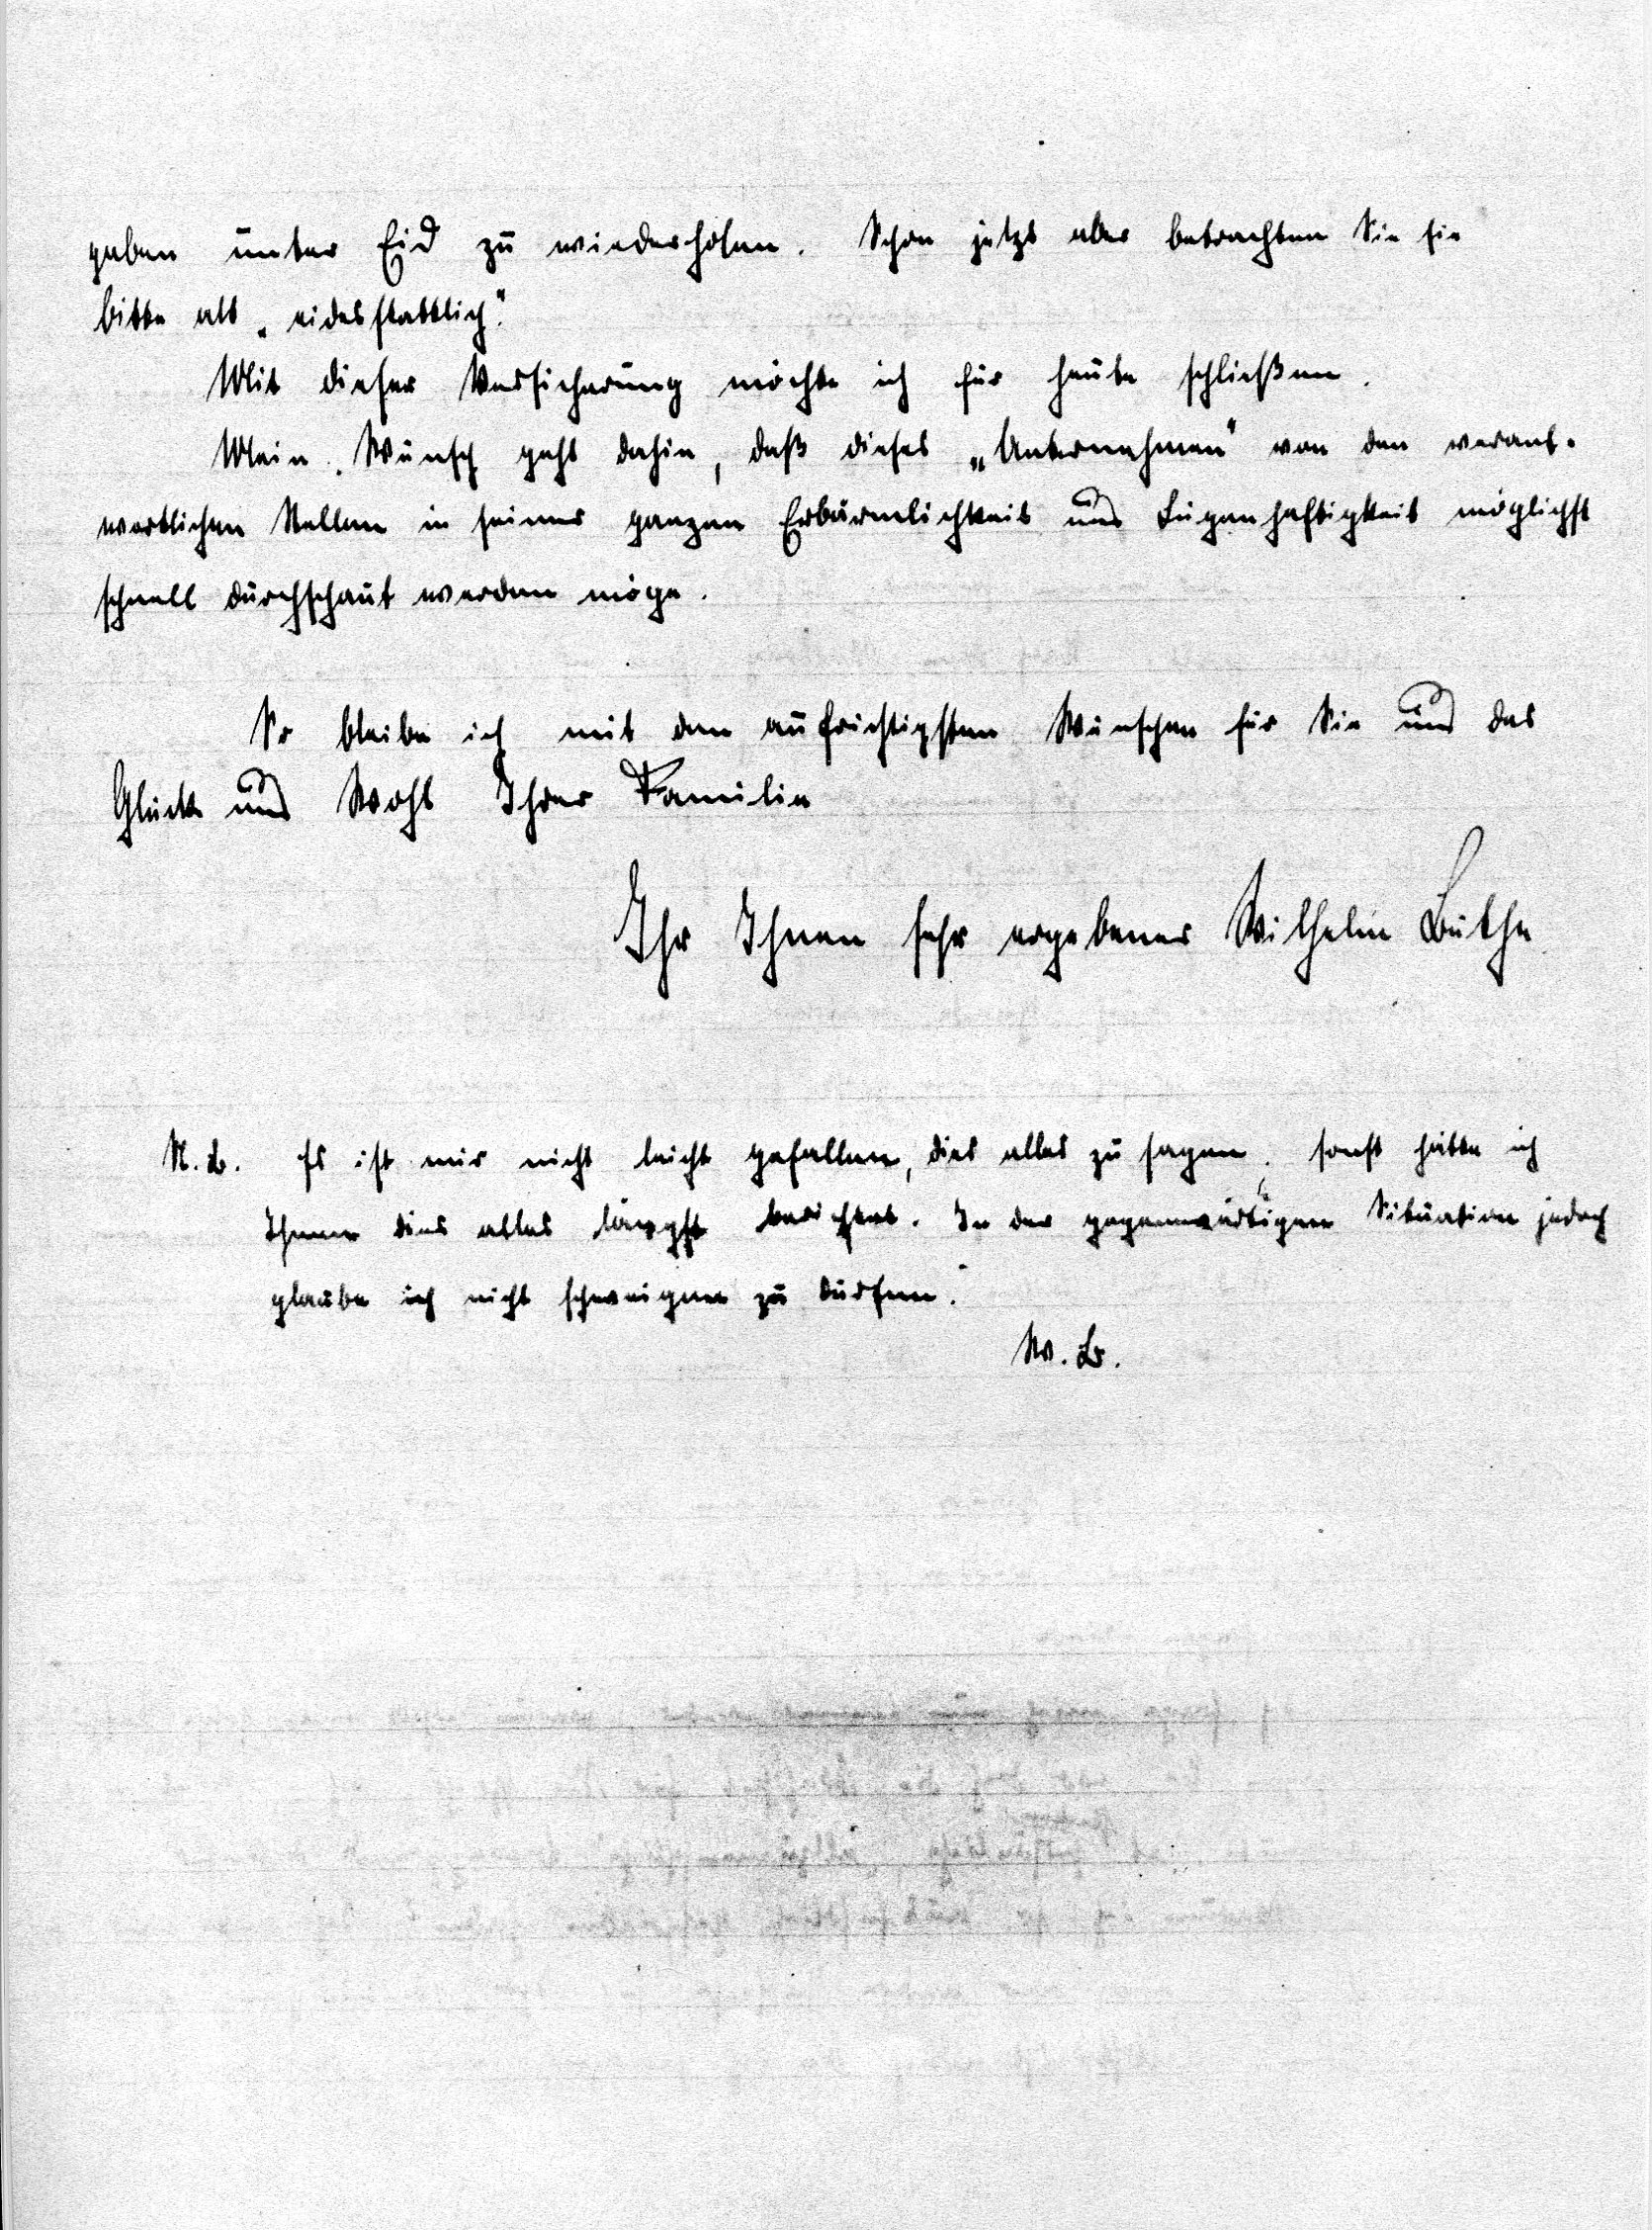 gaben unter Eid zu wiederholen. Schon jetzt aber betrachten Sie sie
bitte als „eidesstattlich".
Mit dieser Versicherung möchte ich für heute schließen.
Mein Wunsch geht dahin, daß dieses „Unternehmen" von den verant-
wortlichen Stellen in seiner ganzen Erbärmlichkeit und Lügenhaftigkeit möglichst
schnell durchschaut werden möge.
So bleibe ich mit den aufrichtigsten Wünschen für Sie und das
Glück und Wohl Ihrer Familie
Ihr Ihnen sehr ergebener Wilhelm
N.B. Es ist mir nicht leicht gefallen, dies alles zu sagen, sonst hätte ich
Ihnen dies alles längst berichtet. In der gegenwärtigen Situation jedoch
glaube ich nicht schweigen zu dürfen.
W. L.